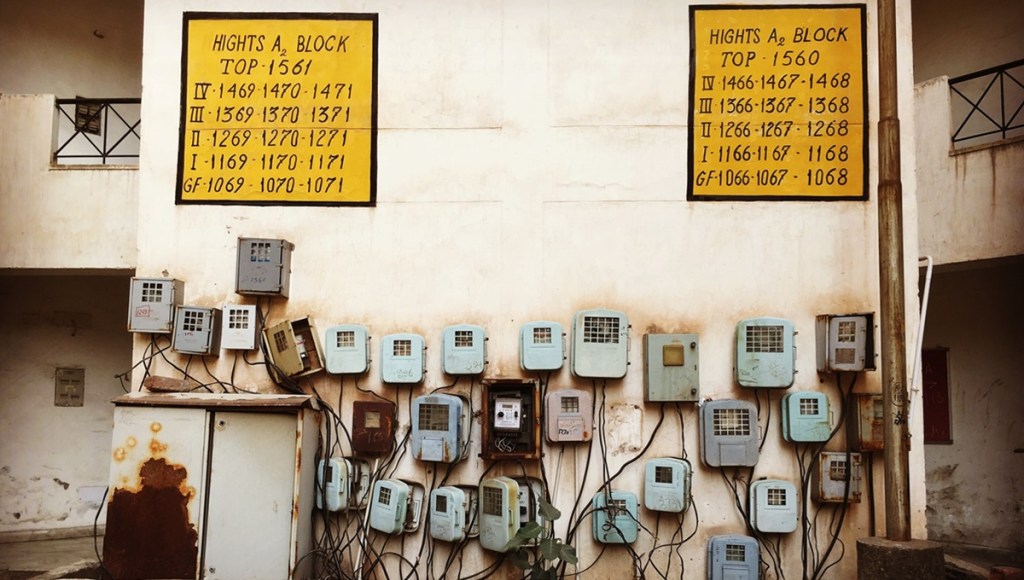 HIGHTS A₂ BLOCK
TOP-1561
IV-1469-1470-1471
III-1369-1370-1371
II-1269-1270-1271
I-1169-1170-1171
GF-1069-1070-1071
HIGHTS A₂ BLOCK
TOP-1560
IV-1466-1467-1468
III-1366-1367-1368
II-1266-1267-1268
I-1166-1167-1168
GF-1066-1067-1068